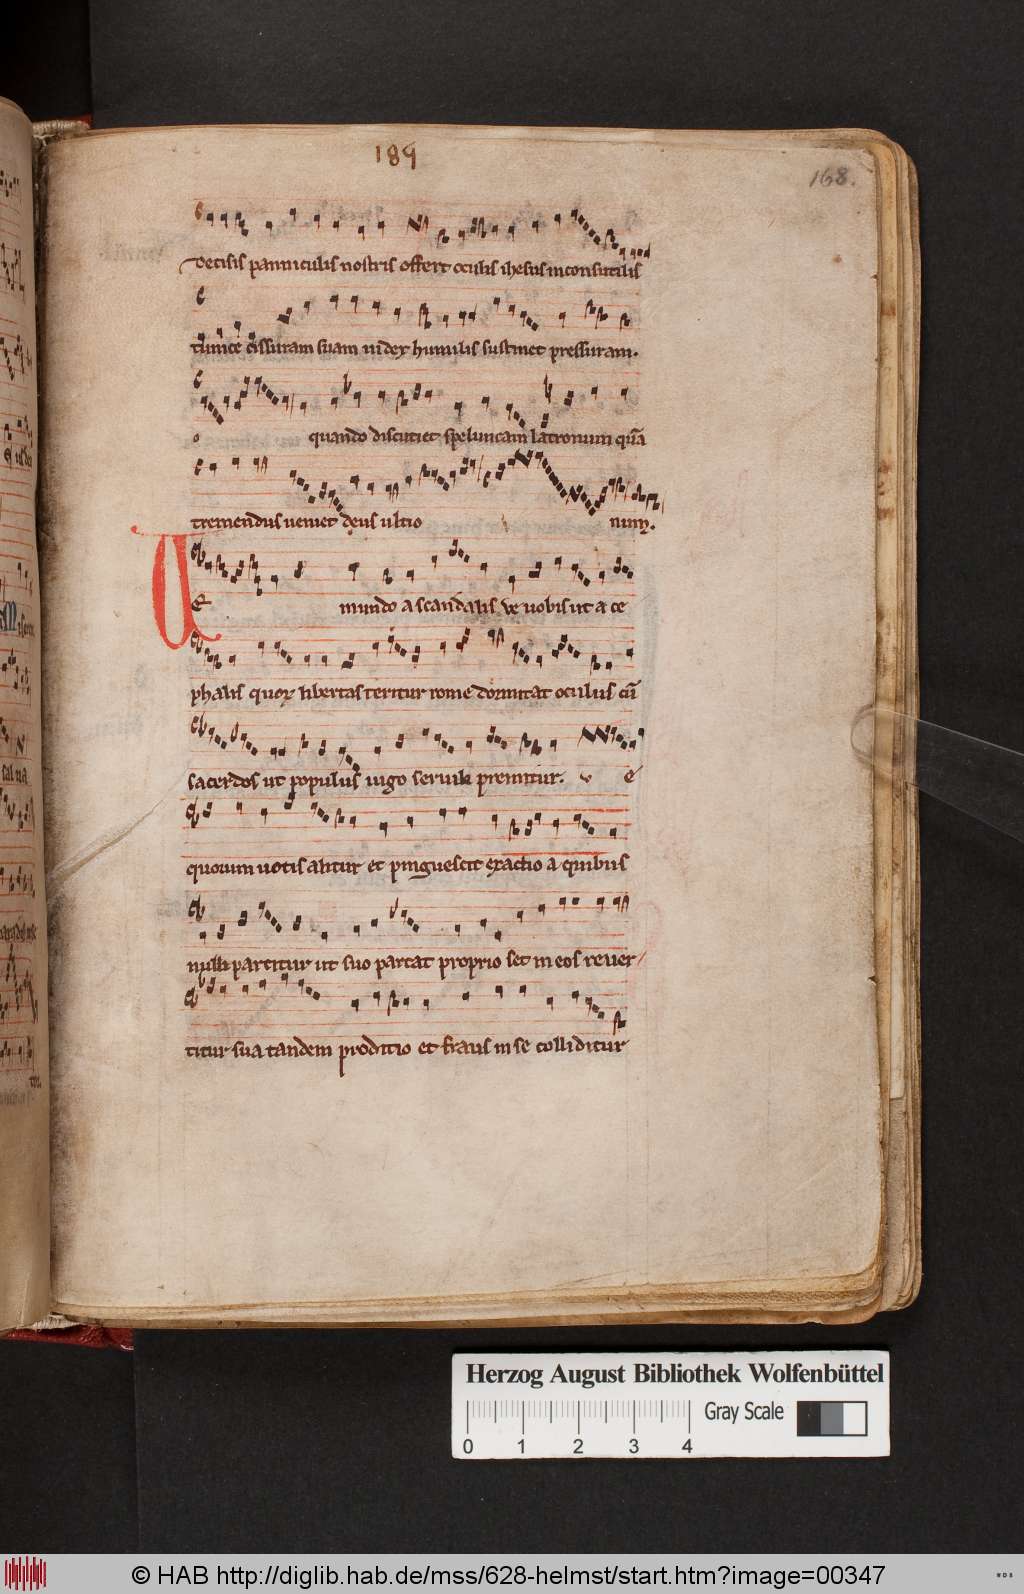 189
168.
Decisis panniculis nostris offert oculis ihesus inconsutilis
tunice cissuram suam iudex humilis sustinet pressuram.
o quando discutiet speluncam latronum quā
tremendus ueniet deus ultio num.
Ve mundo a scandalis ve uobis ut a ce
phalis quor libertas teritur rome dormitat oculus cū
sacerdos ut populus iugo seruili premitur. v e
quorum uotis alitur et pinguescit exactio a quibus
nulli partitur ut suo partat proprio set in eos reuer
titur sua tandem proditio et fraus in se colliditur
Herzog August Bibliothek Wolfenbüttel
Gray Scale
0 1 2 3 4
© HAB http://diglib.hab.de/mss/628-helmst/start.htm?image=00347